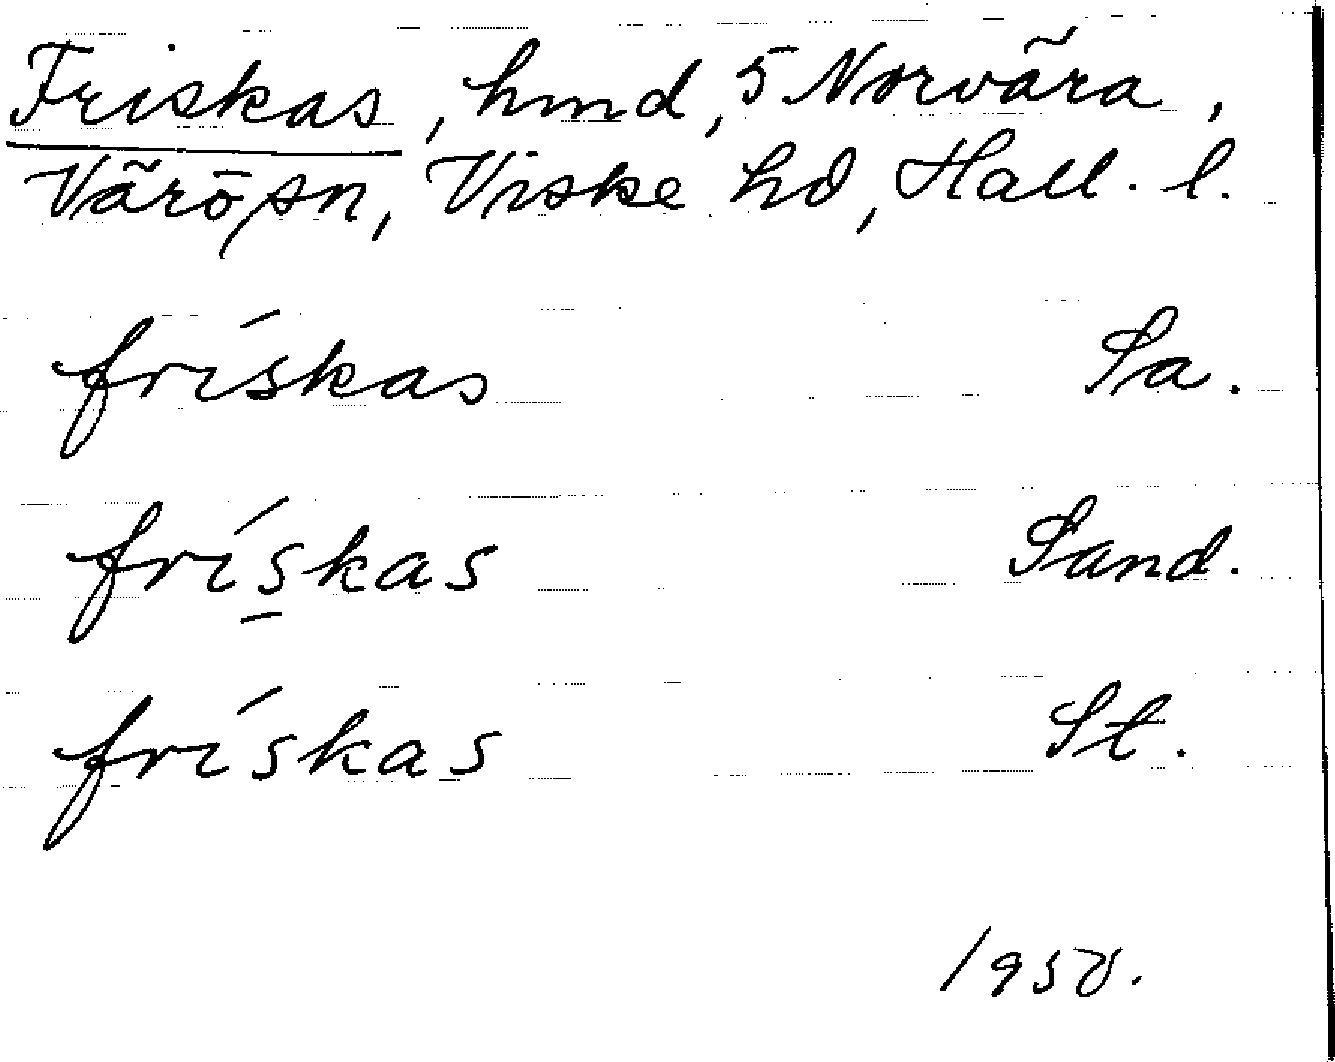 Friskas, hmd, 5 Norvära,
Värö sn, Viske hd, Hall. l.
friskas Sa.
friskas Sand.
friskas St.
1950.